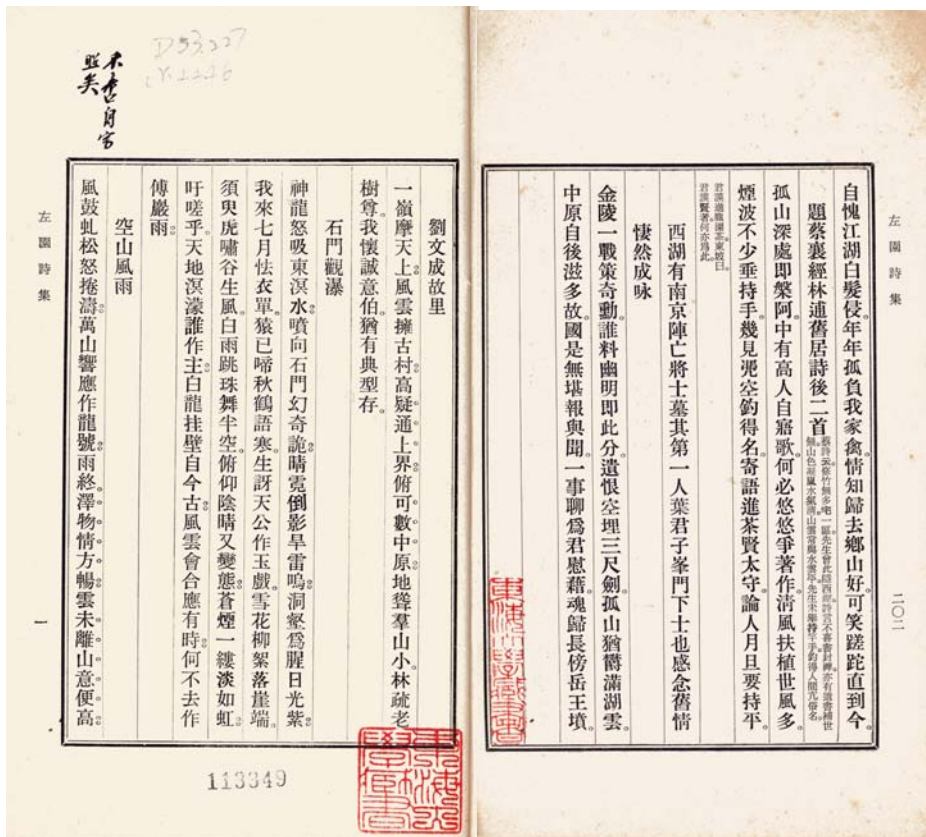 左園詩集
二〇二
自愧江湖白髮侵。年年孤負我家禽。情知歸去鄉山好。可笑蹉跎直到今。
題蔡襄經林逋舊居詩後二首
蔡詩云。修竹無多宅一區。先生曾此隱西湖。詩言不喜書封禪。亦有遺書補世
無。山色 水氣清。山雲常與水雲平。先生未 持竿手。釣得人間亢俗名。
孤山深處即槃阿。中有高人自寤歌。何必悠悠爭著作。清風扶植世風多。
煙波不少垂持手。幾見兜空釣得名。寄語進茶賢太守。論人月旦要持平。
君謨進龍團茶。東坡曰。
君謨賢者。何亦爲此。
西湖有南京陣亡將士墓其第一人葉君子峯門下士也感念舊情
悽然成咏
金陵一戰策奇動。誰料幽明卽此分。遺恨空埋三尺劍。孤山猶鬱滿湖雲。
中原自後滋多故。國是無堪報與聞。一事聊爲君慰藉。魂歸長傍岳王墳。
劉文成故里
一嶺摩天上。風雲擁古村。高疑通上界。俯可數中原。地聳羣山小。林疏老
樹尊。我懷誠意伯。猶有典型存。
石門觀瀑
神龍怒吸東溟水。噴向石門幻奇詭。晴霓倒影旱雷鳴。洞壑爲腥日光紫。
我來七月怯衣單。猿已啼秋鶴語寒。生訝天公作玉戲。雪花柳絮落崖端。
須臾虎嘯谷生風。白雨跳珠舞半空。俯仰陰晴又變態。蒼煙一縷淡如虹。
吁嗟乎。天地溟濛誰作主。白龍挂壁自今古。風雲會合應有時。何不去作
傅巖雨。
空山風雨
風鼓虬松怒捲濤。萬山響應作龍號。雨終澤物情方暢。雲未離山意便高。
左園詩集
一
113349